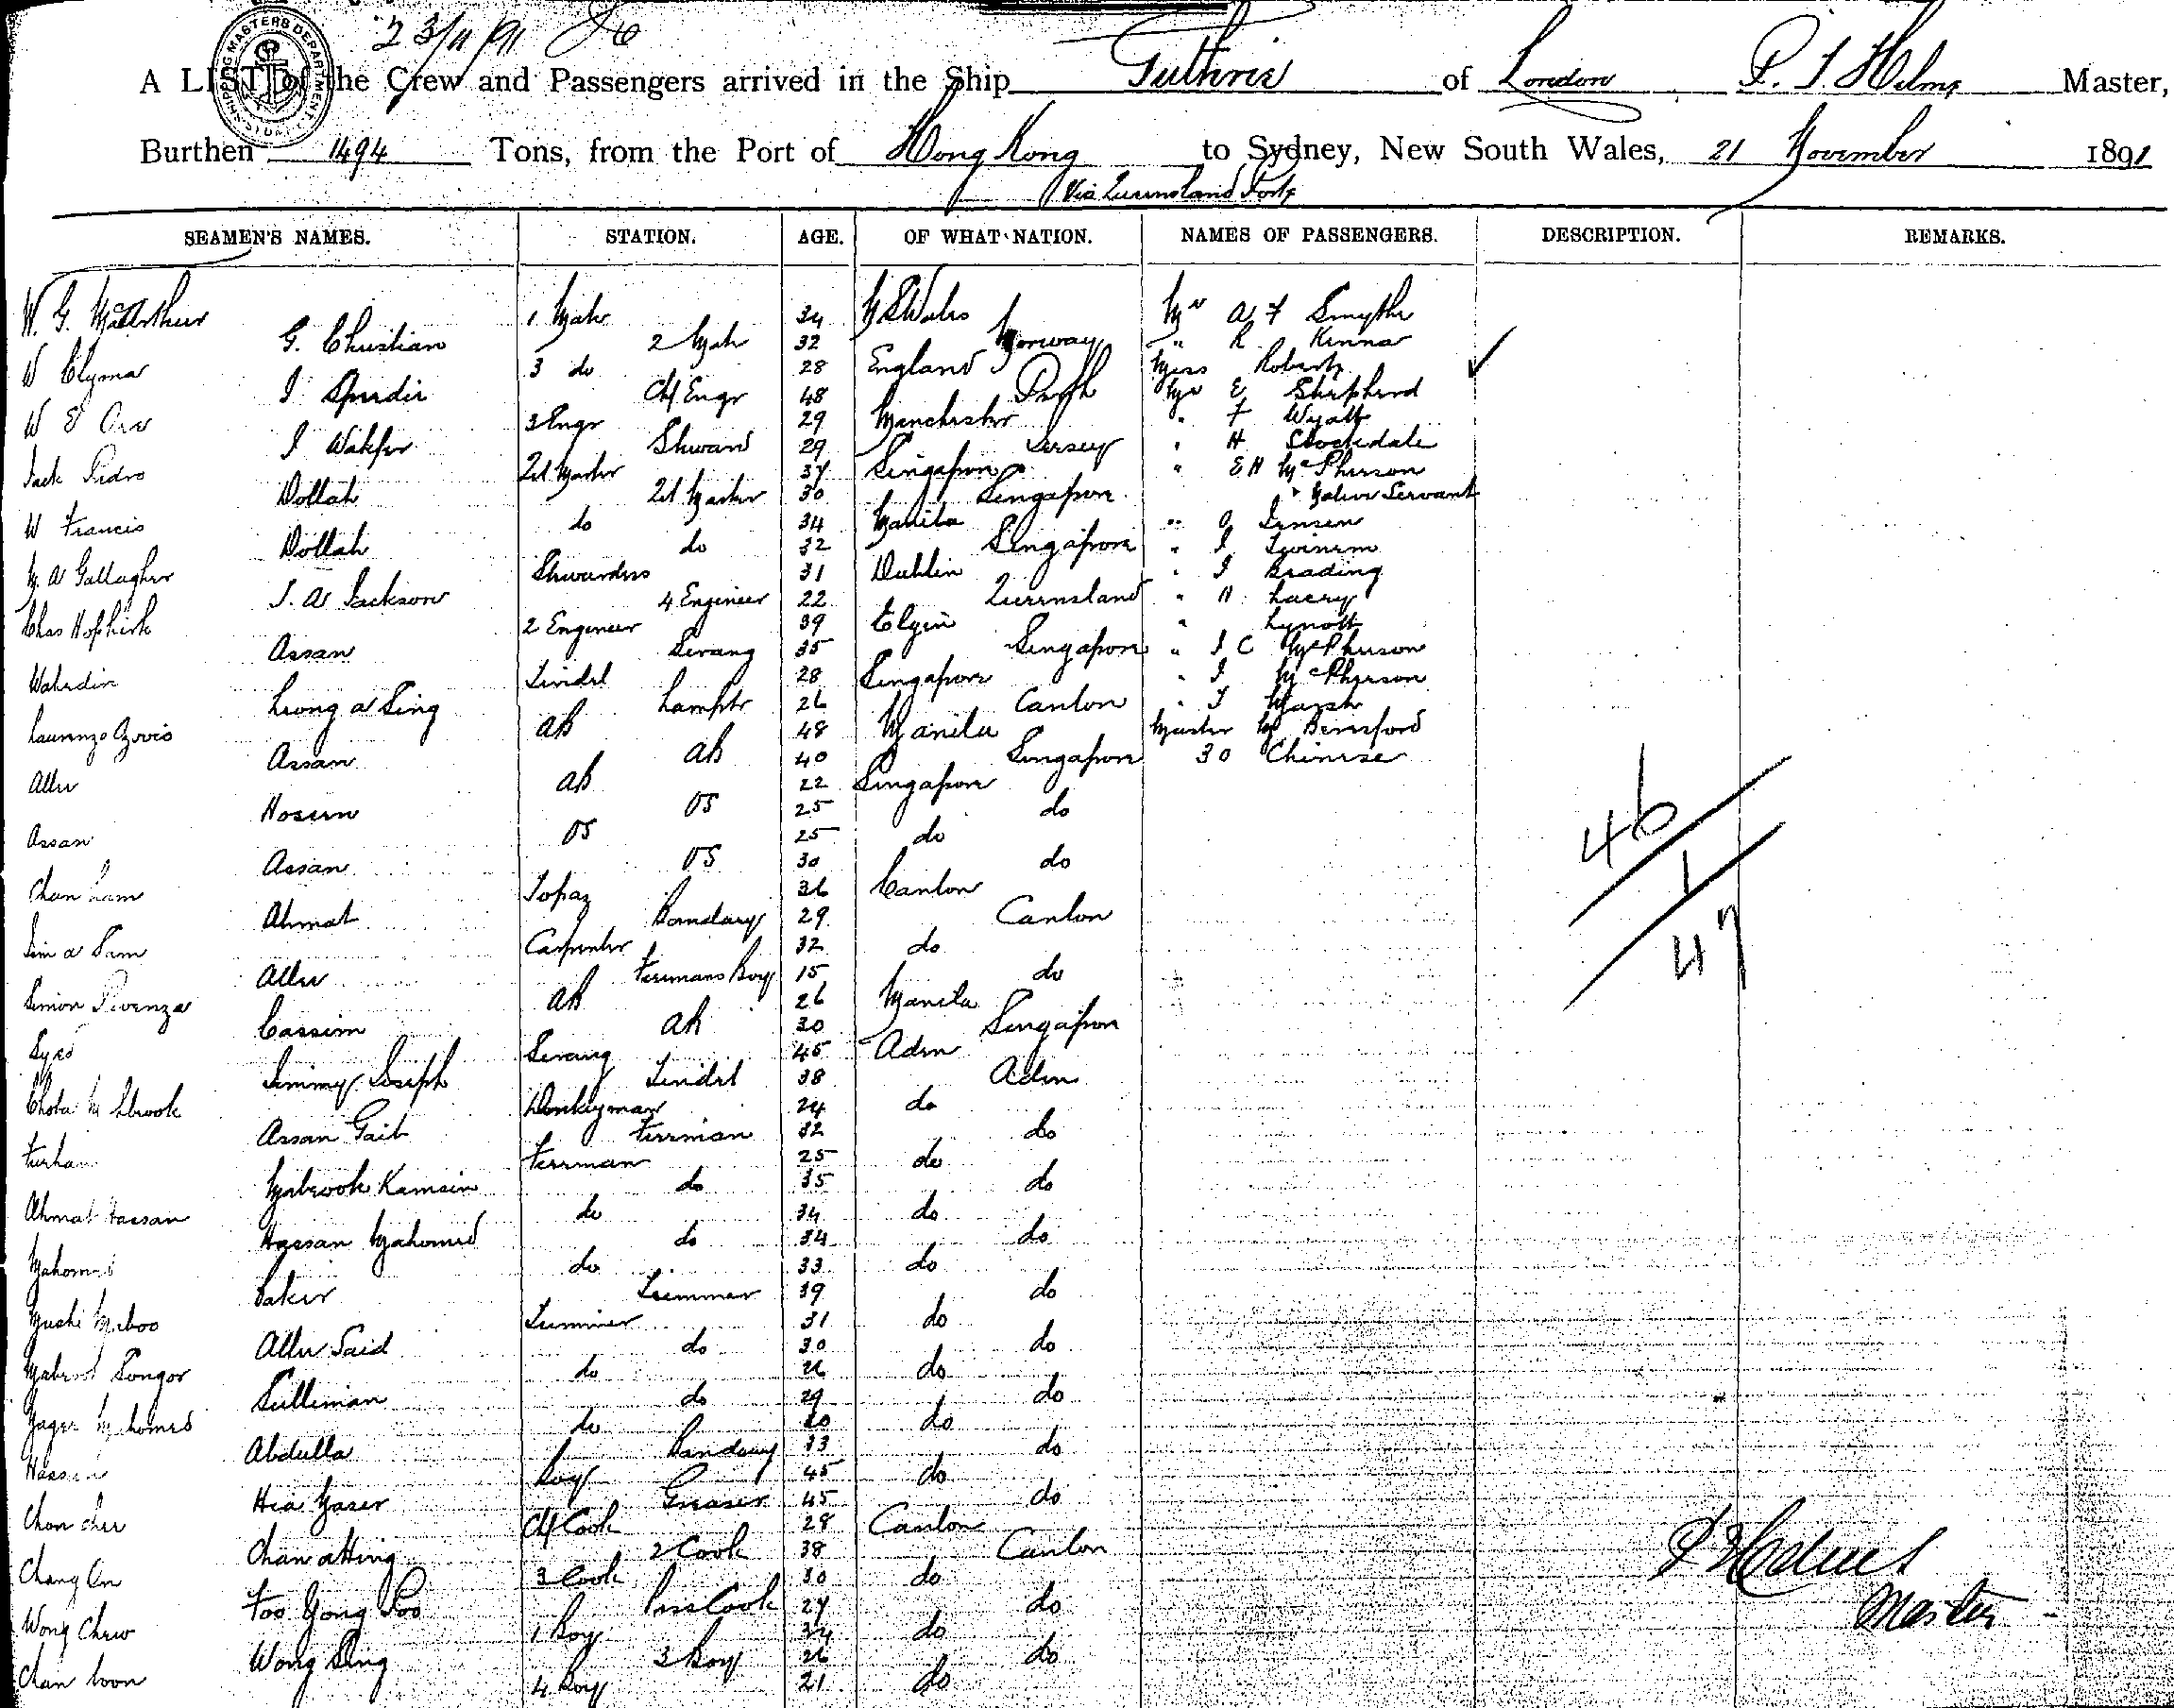 23/11/91
SHIPPING MASTERS DEPARTMENT SYDNEY
A LIST of the Crew and Passengers arrived in the Ship Guthrie of London P. T. Helms Master,
Burthen 1494 Tons, from the Port of Hong Kong to Sydney, New South Wales, 21 November 1891
Via Queensland Ports
SEAMEN'S NAMES. STATION. AGE. OF WHAT NATION. NAMES OF PASSENGERS. DESCRIPTION. REMARKS.
W. G. McArthur 1 Mate 34 N S Wales Mr A F Smythe
G. Christian 2 Mate 32 Norway " R Kinna
W Clymar 3 do 28 England Miss Roberts
J Spurdir Chf Engr 48 Perth Mr E Shepherd
W E Orr 3 Engr 29 Manchester " F Wyatt
J Walker Steward 29 Jersey " H Stockdale
Jack Pedro Qtr Master 37 Singapore " E H McPherson
Dollah Qtr Master 30 Singapore " Native Servant
W Francis do 34 Manila " O Jensen
Dollah do 32 Singapore " J
M. A Gallagher Stewardess 31 Dublin " J Brading
J. A Jackson 4 Engineer 22 Queensland " H. Lacey
Chas Hopkirk 2 Engineer 39 Elgin " Lynott
Assan Serang 35 Singapore " J C McPherson
Wahedin Tindel 28 Singapore " J McPherson
Leong a Sing Lamptr 26 Canton " T Marsh
Laurenzo AB 48 Manila Master W Beresford
Assan AB 40 Singapore 30 Chinese
Allie AB 22 Singapore
Hosein OS 25 do
Assan OS 25 do
Assan OS 30 do
Chan Lam Topaz 36 Canton
Ahmat Bandary 29 Canton
Sim a Pam Carpenter 32 do
Allie Firemans Boy 15 do
Simon AB 26 Manila
Cassim AB 30 Singapore
Syed Serang 45 Aden
Jimmy Joseph Tindel 38 Aden
Chota M Sbrook Donkeyman 24 do
Assan Gait Fireman 32 do
Furhan Fireman 25 do
Mabrook Kamsin do 35 do
Ahmat Hassan do 34 do
Hassan Mahomed do 34 do
Mahomed do 33 do
Baker Trimmer 39 do
Trimmer 31 do
Allie Said do 30 do
Mabrook Songor do 26 do
Sulliman do 29 do
Mahomed do 20 do
Abdulla Bandary 33 do
Hassan Boy 45 do
Greaser 45 do
Chon Cher Chf Cook 28 Canton
Chan a Hing 2 Cook 38 Canton
Chang On 3 Cook 30 do
Foo Yong Poo Pass Cook 27 do
Wong Chew 1 Boy 34 do
Wong Sing 3 Boy 26 do
Chan Coon 4 Boy 21 do
46
1
47
P Helms
Master